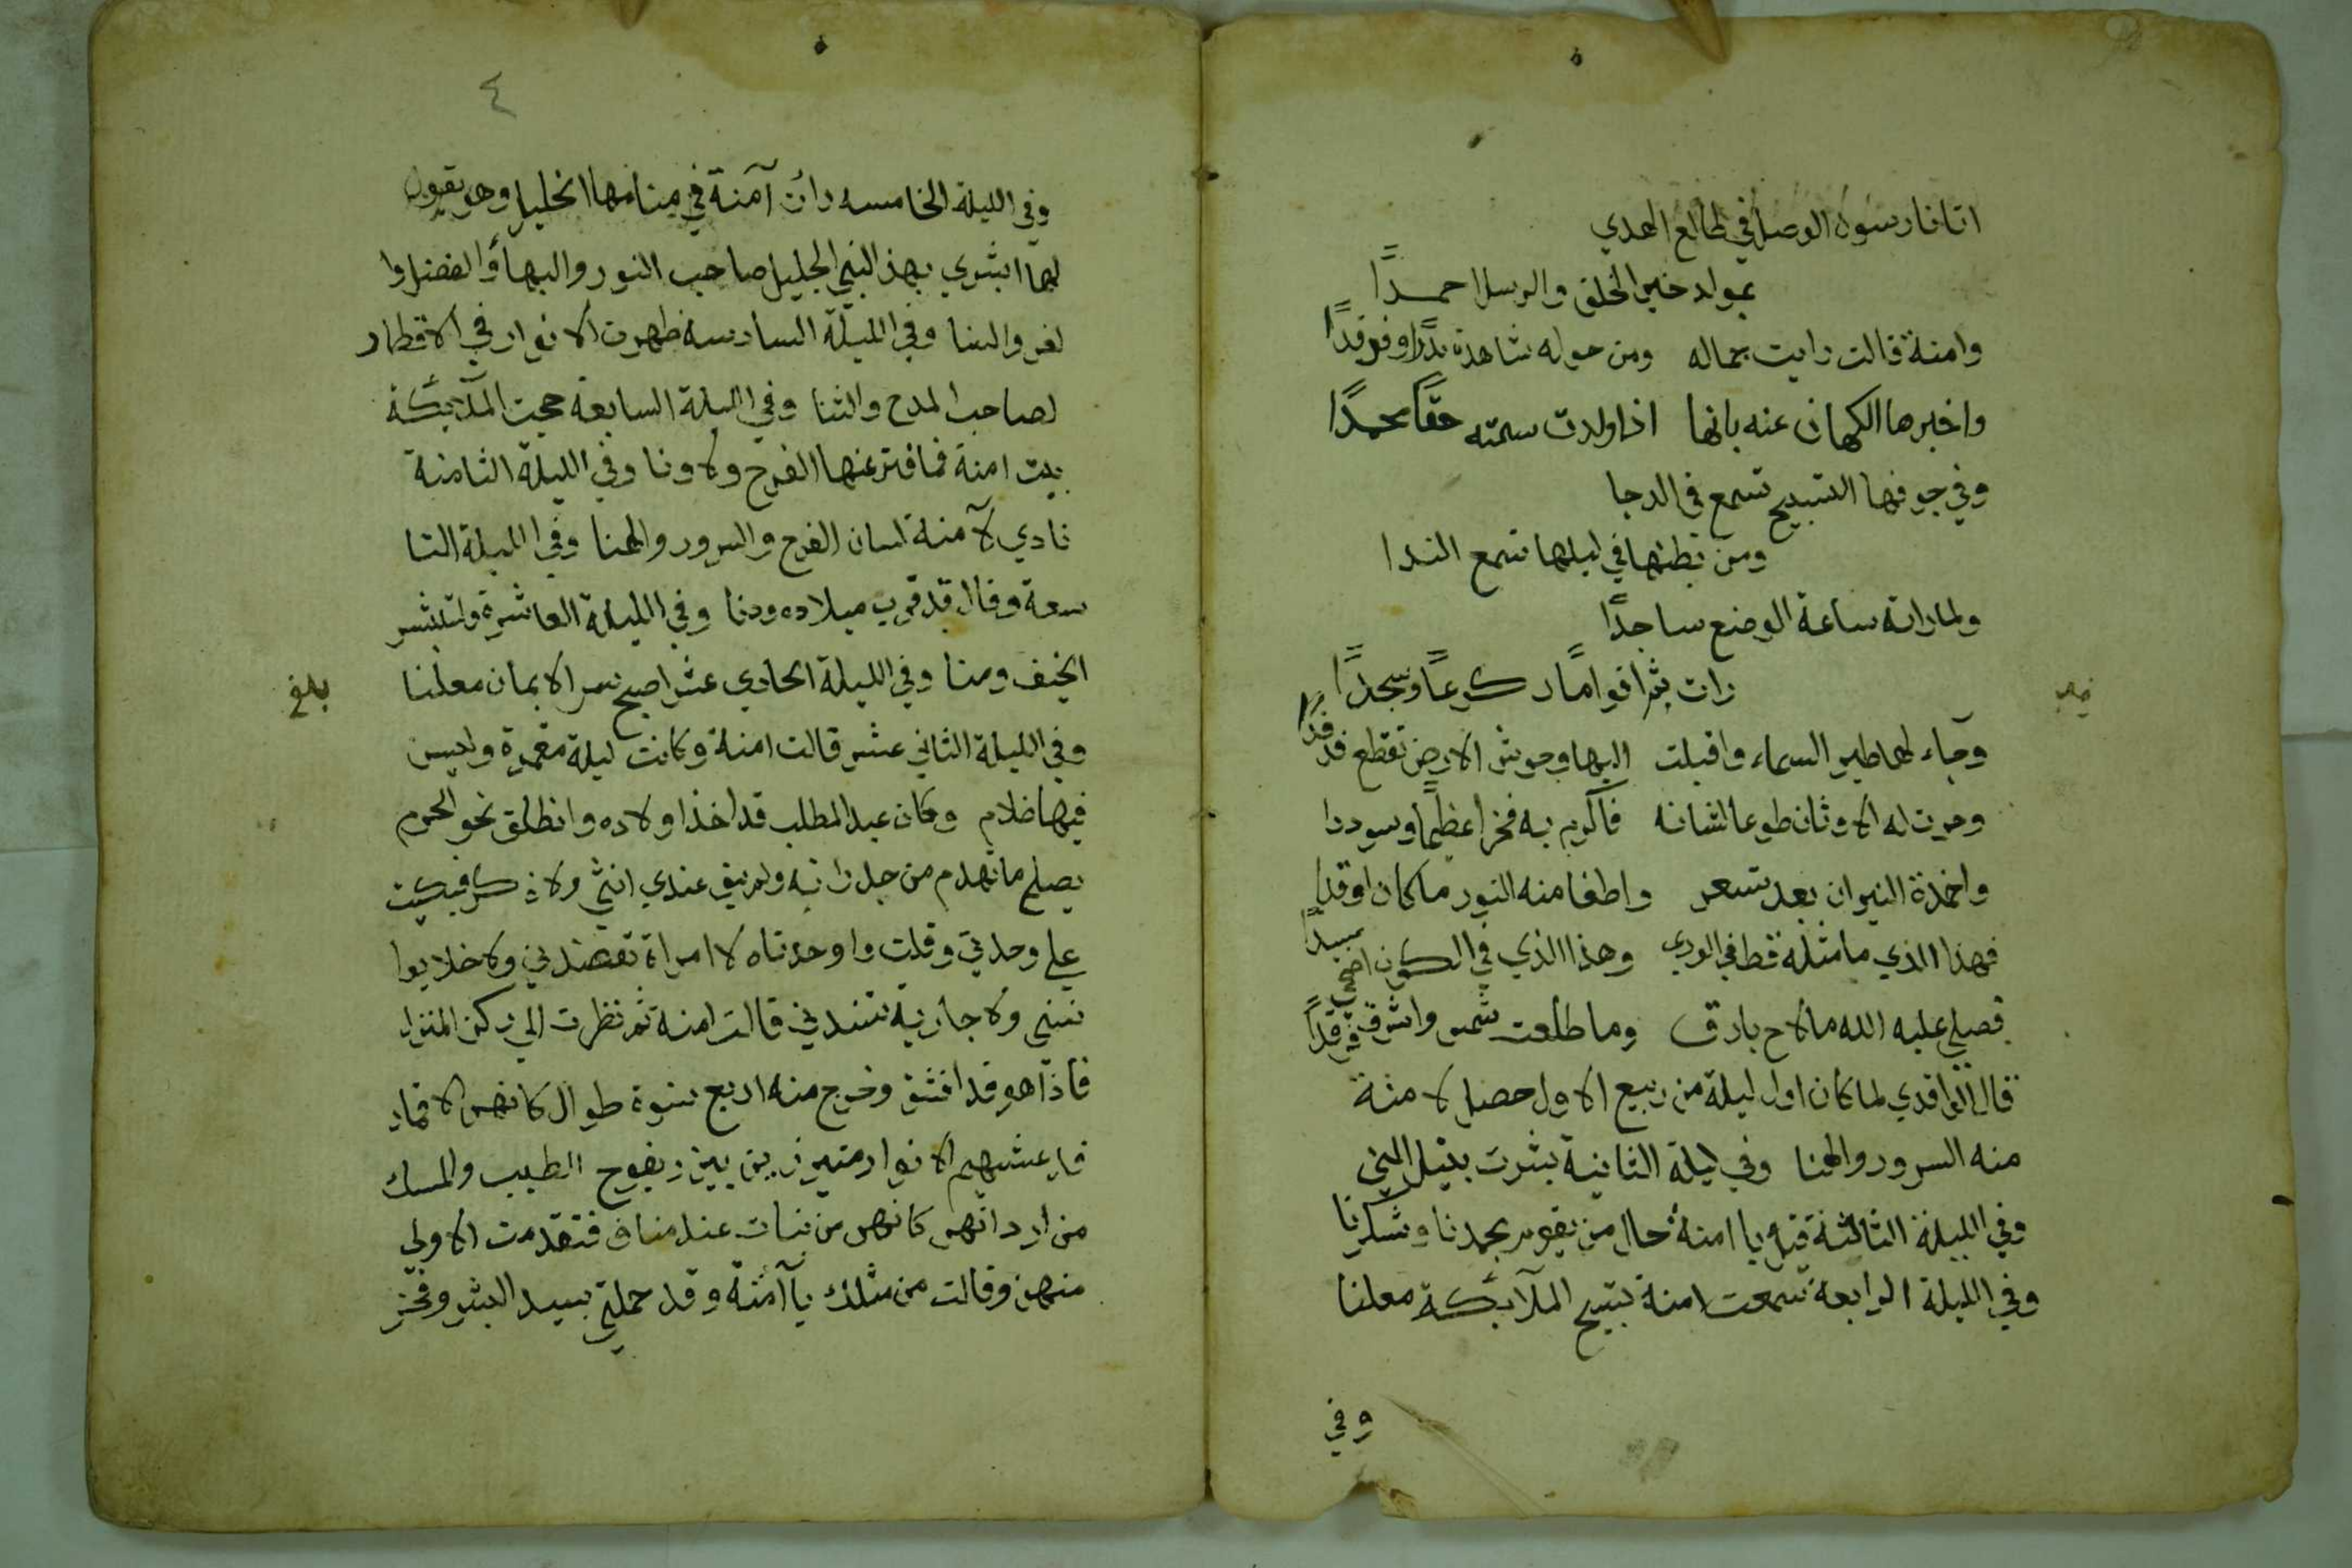 اتانا رسول الوصل في طالع الهدي
بمولد خير الخلق والرسل احمدًا
وامنة قالت رايت جماله ومن حوله شاهدة بدرًا وفرقدًا
واخبرها الكهان عنه بانها اذا ولدت سمته حقًا محمدًا
وفي جوفها التسبيح تسمع في الدجا
ومن بطنها في ليلها تسمع الندا
ولما راته ساعة الوضع ساجدًا
رات بشرا قوامًا ركوعًا وسجدًا
وجاء لها طير السماء واقبلت اليها وحوش الارض تقطع فدفدًا
وخرت له الاوثان طوعا لشانه فاكرم به فخرا عظيمًا وسوددا
واخمدة النيران بعد تسعر واطفا منه النور ما كان اوقدا
فهذا الذي ما مثله قط في الوري وهذا الذي في الكون اضحي سيدًا
فصلي عليه الله ما لاح بارق وما طلعت شمس واشرق فرقدًا
قال الواقدي لما كان اول ليلة من ربيع الاول حصل لامنة
منه السرور والهنا وفي ليلة الثانية بشرت بنيل المني
وفي الليلة الثالثة قيل يا امنة حال من يقوم بحمدنا وشكرنا
وفي الليلة الرابعة سمعت امنة تسبيح الملآئكة معلنا
وفي
٤
وفي الليلة الخامسه رات آمنة في منامها الخليل وهو يقول
لها ابشري بهذ النبي الجليل صاحب النور والبهآ والفضل وا
لعز والسنا وفي الليلة السادسة ظهرت الانوار في الاقطار
لصاحب المدح والثنا وفي الليلة السابعة حجت الملآئكة
بيت امنة فما فتر عنها الفرح ولا ونا وفي الليلة الثامنة
نادي لآمنة لسان الفرح والسرور والهنا وفي الليلة التا
سعة وقال قد قرب ميلاده ودنا وفي الليلة العاشرة
الخيف ومنا وفي الليلة الحادي عشر اصبح سر الايمان معلنا
بلغ
وفي الليلة الثاني عشر قالت امنة وكانت ليلة مقمرة وليس
فيها ظلام وكان عبد المطلب قد اخذ اولاده وانطلق نحو الحرم
يصلح ما تهدم من جدرانه ولم يبق عندي انثي ولا ذكر فبكيت
علي وحدتي وقلت وا وحدتاه لا امراة تعضدني ولا خلا يوا
نسني ولا جارية تسندني قالت امنة ثم نظرت الي ركن المنزل
فاذا هو قد انشق وخرج منه اربع نسوة طوال كانهن الاقمار
الانوار يفوح الطيب والمسك
من اردانهن كانهن من بنات عبد مناف فتقدمت الاولي
منهن وقالت من مثلك يآ آمنة وقد حملتي بسيد البشر وفخر